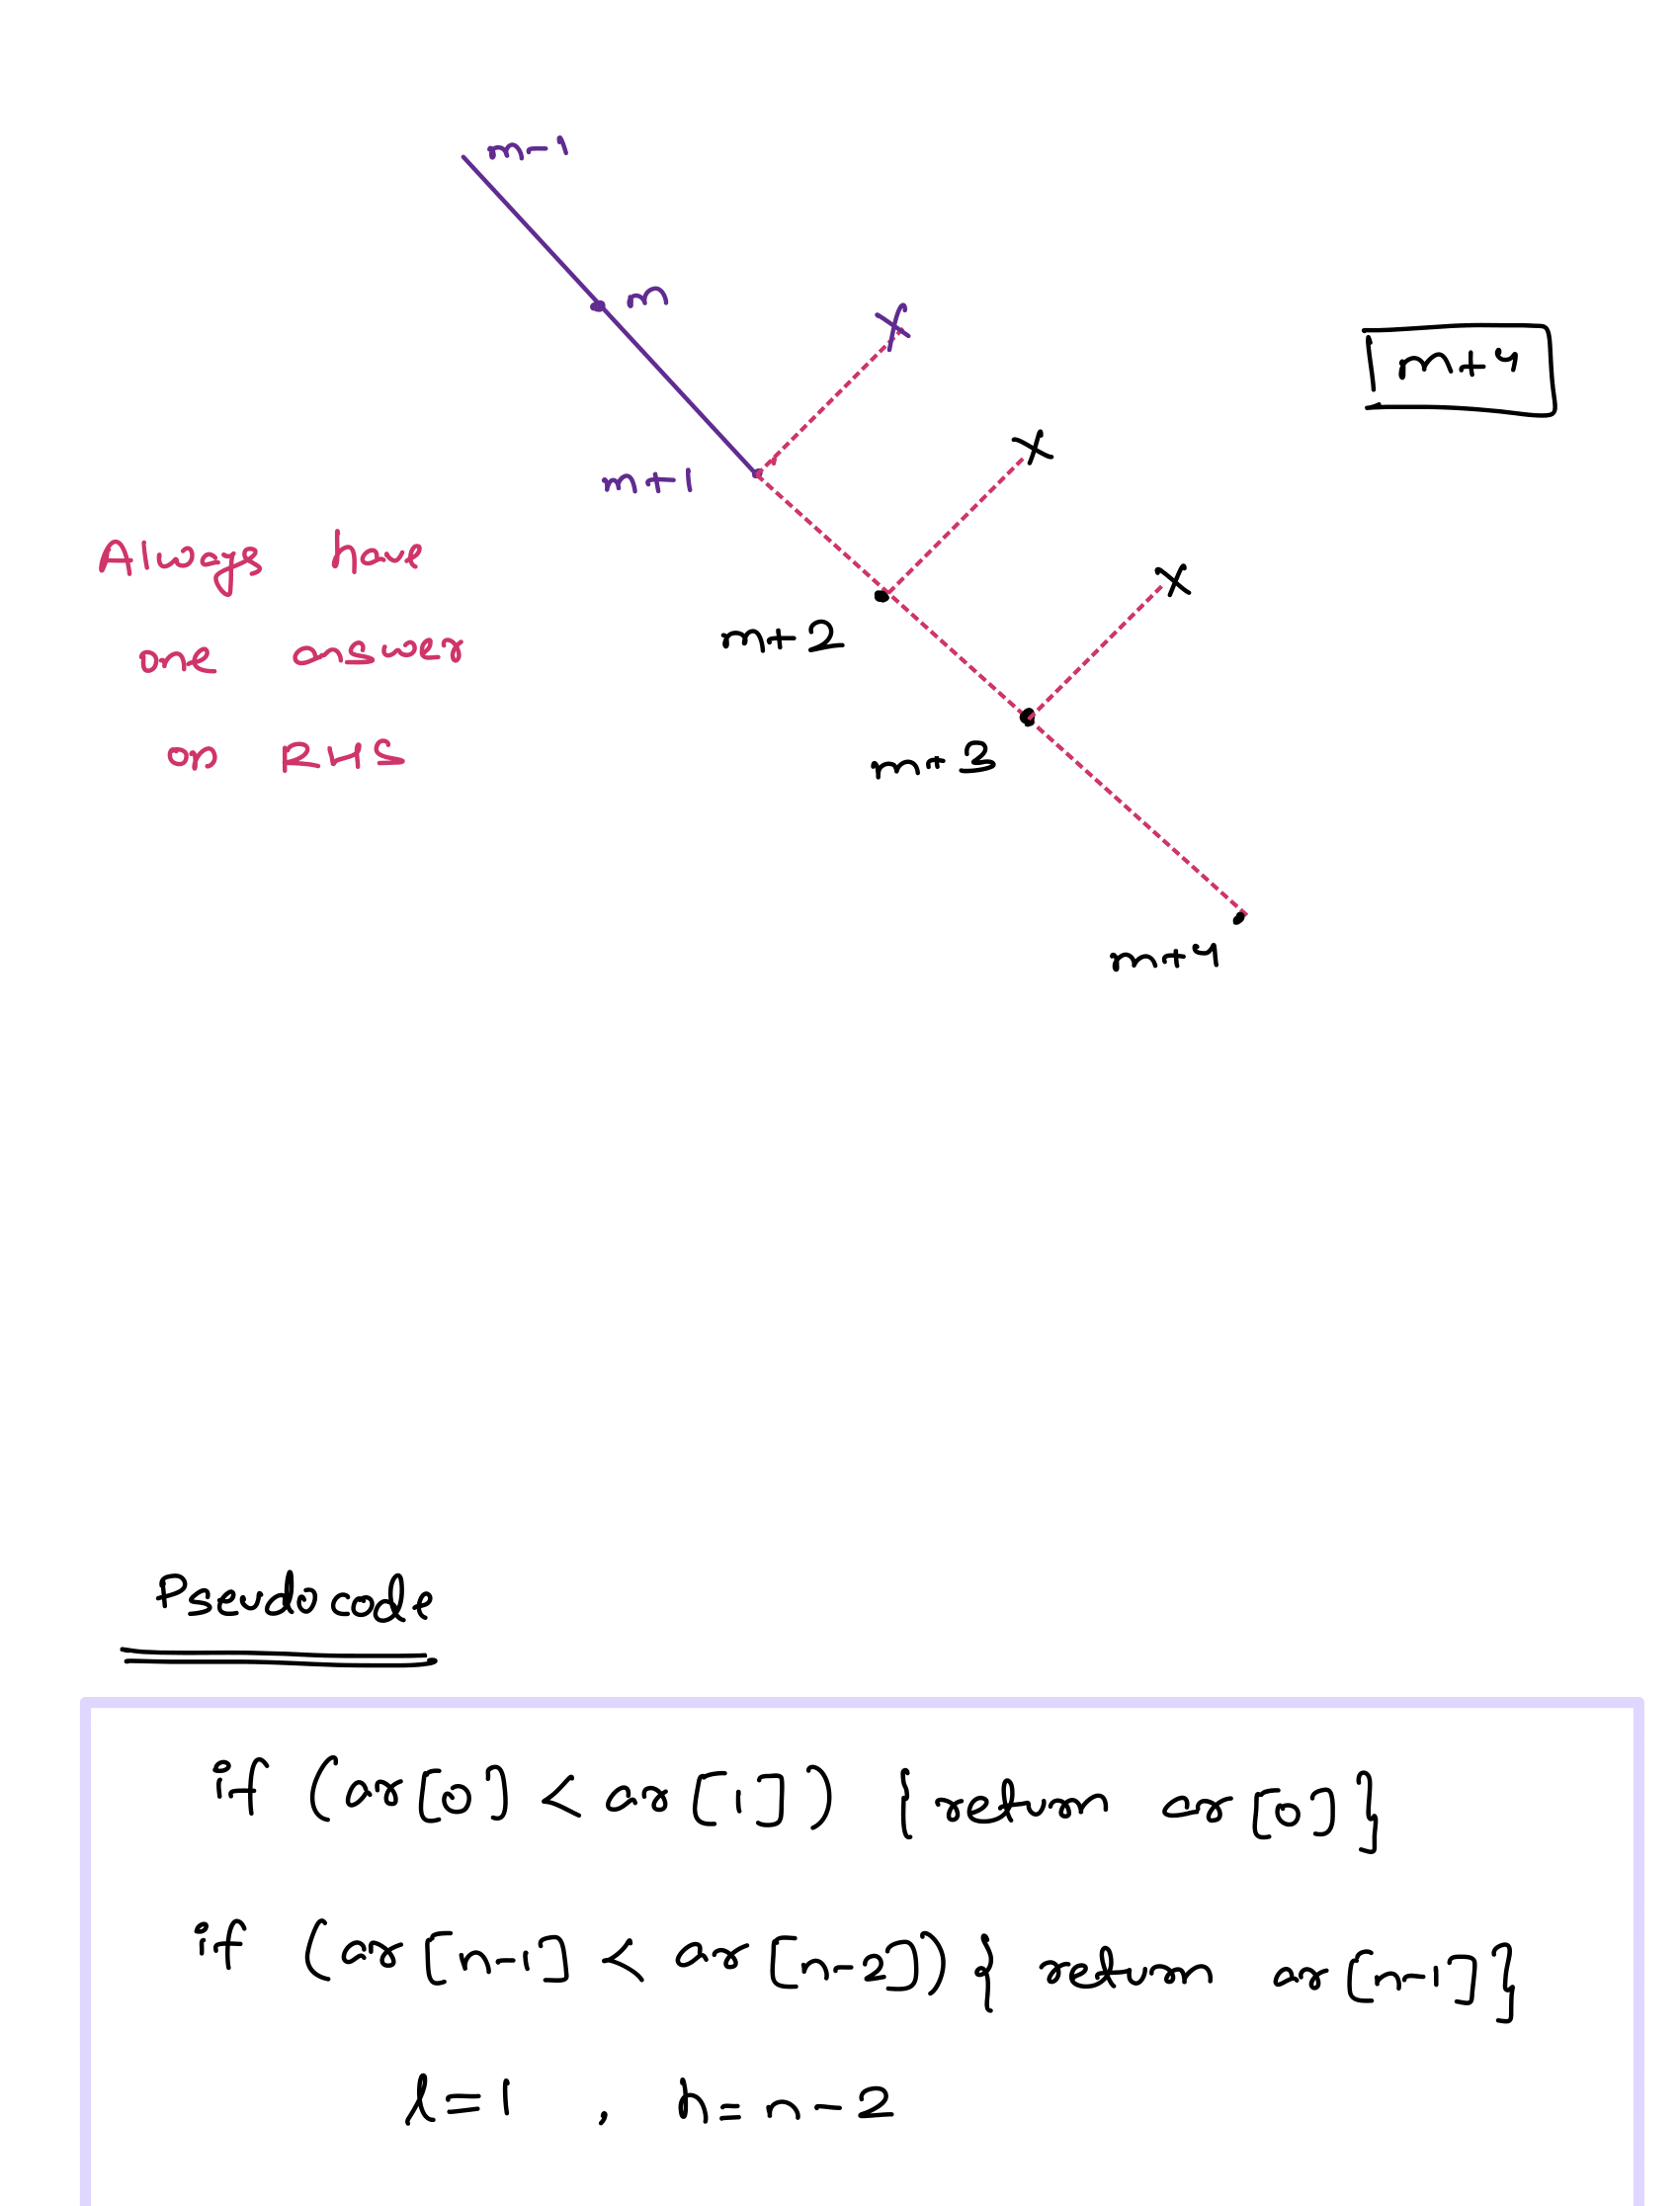 m-1
m
m+4
m+1
Always have
one answer
on RHS
m+2
m+3
m+4
Pseudocode
if (ar[0] < ar[1]) {return ar[0]}
if (ar[n-1] < ar[n-2]) { return ar[n-1]}
l=1 , h=n-2